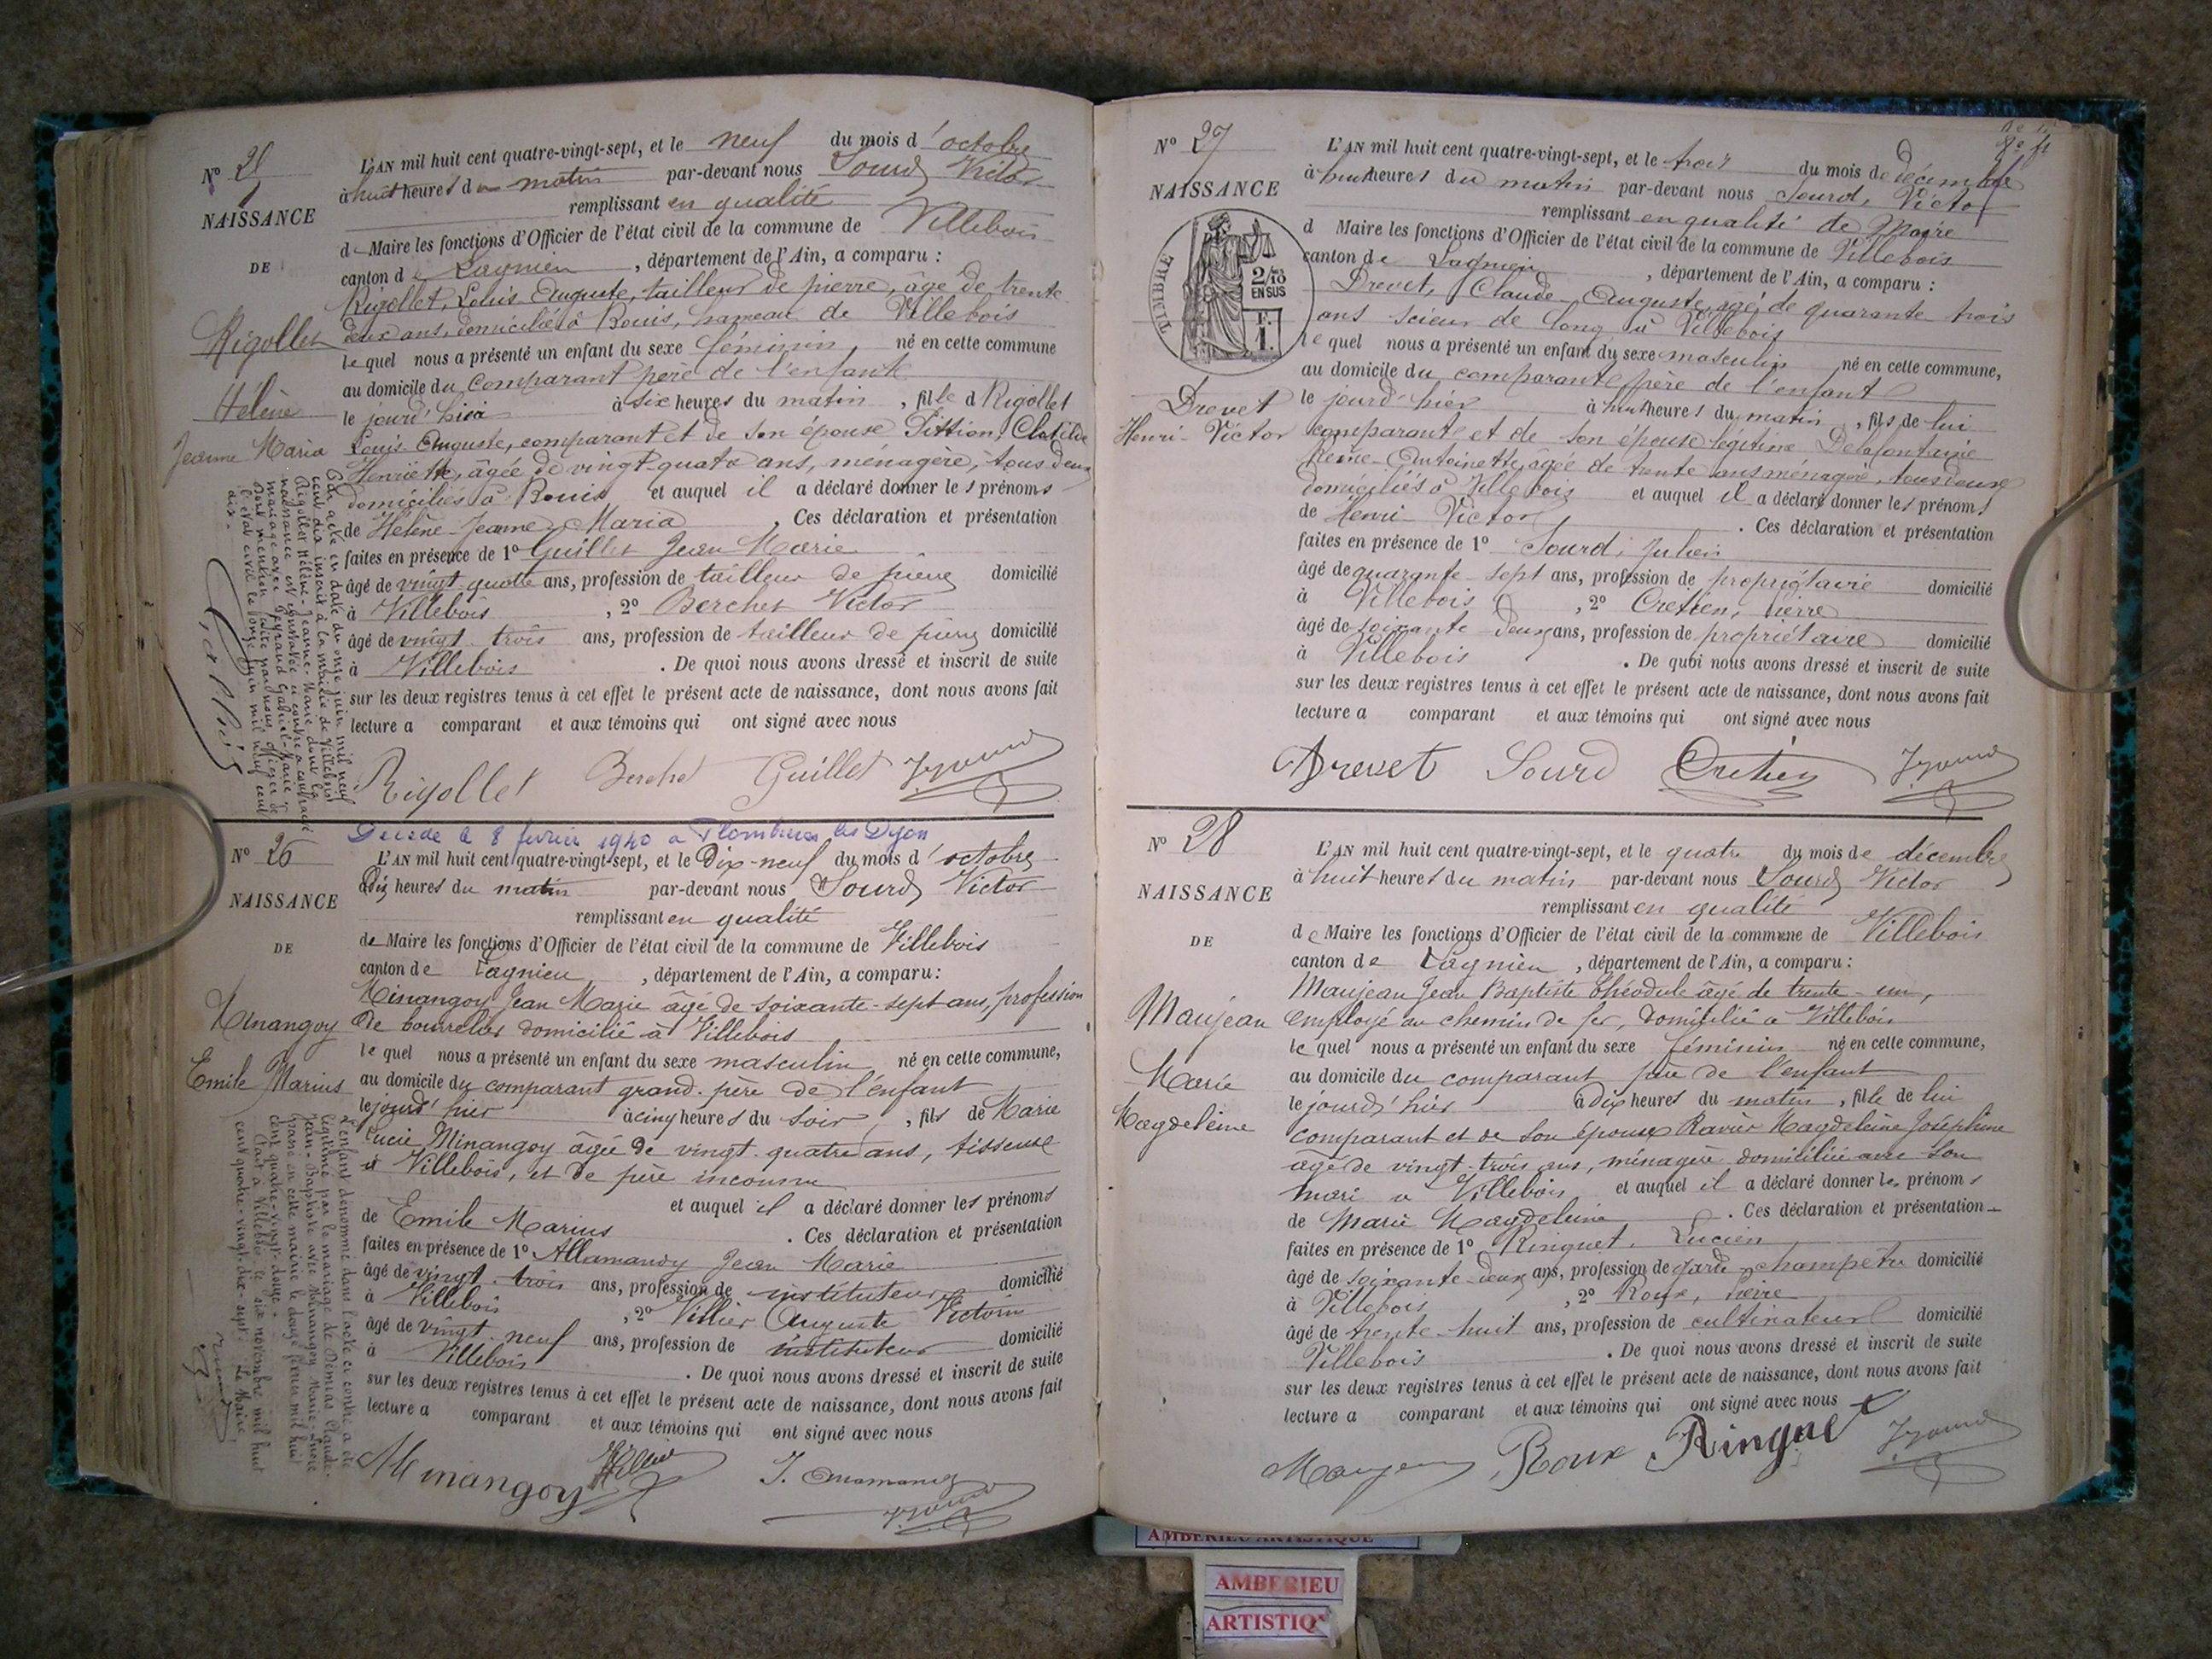 N° 25
NAISSANCE
DE
Rigollet
Hélène
Jeanne Maria
L'AN mil huit cent quatre-vingt-sept, et le neuf du mois d'octobre
à huit heures du matin par-devant nous Sourd Victor
remplissant en qualité
de Maire les fonctions d'Officier de l'état civil de la commune de Villebois
canton de Lagnieu, département de l'Ain, a comparu :
Rigollet, Louis Auguste, tailleur de pierre, âgé de trente
deux ans, domicilié à Bouis, hameau de Villebois
lequel nous a présenté un enfant du sexe féminin, né en cette commune
au domicile du comparant père de l'enfant
le jourd'hier à six heures du matin, fille d Rigollet
Louis Auguste, comparant et de son épouse Pittion, Clotilde
Henriette, âgée de vingt-quatre ans, ménagère, tous deux
domiciliés à Bouis et auquel il a déclaré donner les prénoms
de Hélène Jeanne Maria. Ces déclaration et présentation
faites en présence de 1° Guillet Jean Marie
âgé de vingt quatre ans, profession de tailleur de pierre domicilié
à Villebois, 2° Berchet Victor
âgé de vingt trois ans, profession de tailleur de pierre domicilié
à Villebois. De quoi nous avons dressé et inscrit de suite
sur les deux registres tenus à cet effet le présent acte de naissance, dont nous avons fait
lecture a comparant et aux témoins qui ont signé avec nous
Rigollet Berchet Guillet
Par acte en date du onze juin mil neuf
cent dix inscrit à la mairie de Villebois
Rigollet Hélène-Jeanne-Maria dont la
naissance est constatée ci contre a contracté
mariage avec Peyraud Gabriel-Marie
Dont mention faite par nous, greffier de
l'état civil le onze juin mil neuf cent
dix.
Décédé le 8 février 1940 a Plombières les Dijon
N° 26
NAISSANCE
DE
Minangoy
Emile Marius
L'AN mil huit cent quatre-vingt-sept, et le Dix-neuf du mois d'octobre
à Dix heures du matin par-devant nous Sourd Victor
remplissant en qualité
de Maire les fonctions d'Officier de l'état civil de la commune de Villebois
canton de Lagnieu, département de l'Ain, a comparu :
Minangoy Jean Marie âgé de soixante-sept ans, profession
de bourrelier domicilié à Villebois
lequel nous a présenté un enfant du sexe masculin né en cette commune,
au domicile du comparant grand-père de l'enfant
le jourd'hier à cinq heures du soir, fils de Marie
Lucie Minangoy âgée de vingt-quatre ans, tisseuse
à Villebois, et de père inconnu
et auquel il a déclaré donner les prénoms
de Emile Marius. Ces déclaration et présentation
faites en présence de 1° Allamanoy Jean Marie
âgé de vingt-trois ans, profession de instituteur domicilié
à Villebois, 2° Villier Auguste Victorin
âgé de vingt-neuf ans, profession de instituteur domicilié
à Villebois. De quoi nous avons dressé et inscrit de suite
sur les deux registres tenus à cet effet le présent acte de naissance, dont nous avons fait
lecture a comparant et aux témoins qui ont signé avec nous
Minangoy Villier
L'enfant dénommé dans l'acte ci contre a été
légitimé par le mariage de Démias Claude-
Jean-Baptiste avec Minangoy Marie-Lucie
passé en cette mairie le douze février mil huit
cent quatre-vingt-douze.
Fait à Villebois le six novembre mil huit
cent quatre-vingt-dix-sept. Le Maire,
N° 27
NAISSANCE
TIMBRE
2/10
EN SUS
F.
1.
Drevet
Henri-Victor
L'AN mil huit cent quatre-vingt-sept, et le trois du mois de décembre
à huit heures du matin par-devant nous Sourd, Victor
remplissant en qualité de Maire
d Maire les fonctions d'Officier de l'état civil de la commune de Villebois
canton de Lagnieu, département de l'Ain, a comparu :
Drevet, Claude-Auguste, âgé de quarante trois
ans scieur de long à Villebois
lequel nous a présenté un enfant du sexe masculin né en cette commune,
au domicile du comparant père de l'enfant
le jourd'hier à huit heures du matin, fils de lui
comparant et de son épouse légitime Delafontaine
Reine-Antoinette, âgée de trente ans ménagère, tous deux
domiciliés à Villebois et auquel il a déclaré donner les prénoms
de Henri Victor. Ces déclaration et présentation
faites en présence de 1° Sourd, Julien
âgé de quarante-sept ans, profession de propriétaire domicilié
à Villebois, 2° Cretien, Pierre
âgé de soixante-deux ans, profession de propriétaire domicilié
à Villebois. De quoi nous avons dressé et inscrit de suite
sur les deux registres tenus à cet effet le présent acte de naissance, dont nous avons fait
lecture a comparant et aux témoins qui ont signé avec nous
Drevet Sourd Cretien
N° 28
NAISSANCE
DE
Maujean
Marie
Magdeleine
L'AN mil huit cent quatre-vingt-sept, et le quatre du mois de décembre
à huit heures du matin par-devant nous Sourd Victor
remplissant en qualité
de Maire les fonctions d'Officier de l'état civil de la commune de Villebois
canton de Lagnieu, département de l'Ain, a comparu :
Maujean Jean Baptiste Théodule âgé de trente-un,
employé au chemin de fer, domicilié à Villebois
lequel nous a présenté un enfant du sexe féminin né en cette commune,
au domicile du comparant père de l'enfant
le jourd'hier à dix heures du matin, fille de lui
comparant et de son épouse Ravier Magdeleine Joséphine
âgé de vingt-trois ans, ménagère domiciliée avec son
mari à Villebois et auquel il a déclaré donner les prénoms
de Marie Magdeleine. Ces déclaration et présentation
faites en présence de 1° Ringuet, Lucien
âgé de soixante-deux ans, profession de garde-champêtre domicilié
à Villebois, 2° Roux, Pierre
âgé de trente-huit ans, profession de cultivateur domicilié
Villebois. De quoi nous avons dressé et inscrit de suite
sur les deux registres tenus à cet effet le présent acte de naissance, dont nous avons fait
lecture a comparant et aux témoins qui ont signé avec nous
Maujean Roux Ringuet
AMBERIEU ARTISTIQUE
AMBERIEU
ARTISTIQ